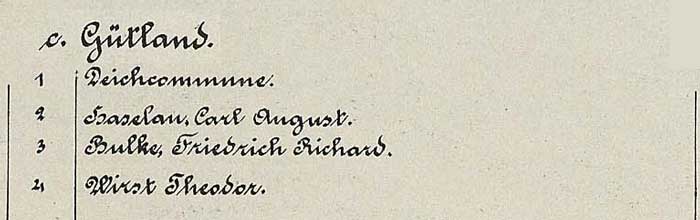 c. Gütland.
1 Deichcommune.
2 Haselau, Carl August.
3 Bulke, Friedrich Richard.
4 Wirst Theodor.